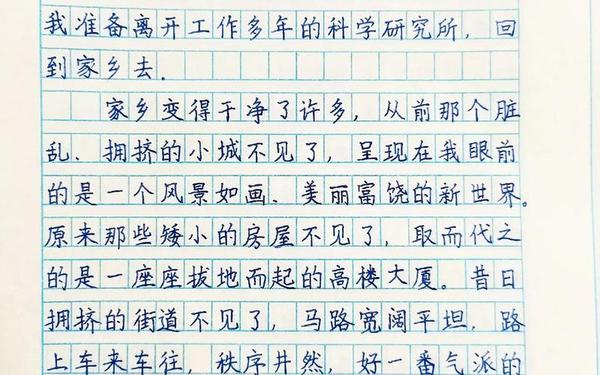 我准备离开工作多年的科学研究所，回
到家乡去.
家乡变得干净了许多，从前那个脏
乱、拥挤的小城不见了，呈现在我眼前
的是一个风景如画、美丽富饶的新世界。
原来那些矮小的房屋不见了，取而代之
的是一座座拔地而起的高楼大厦。昔日
拥挤的街道不见了，马路宽阔平坦，路
上车来车往，秩序井然，好一番气派的